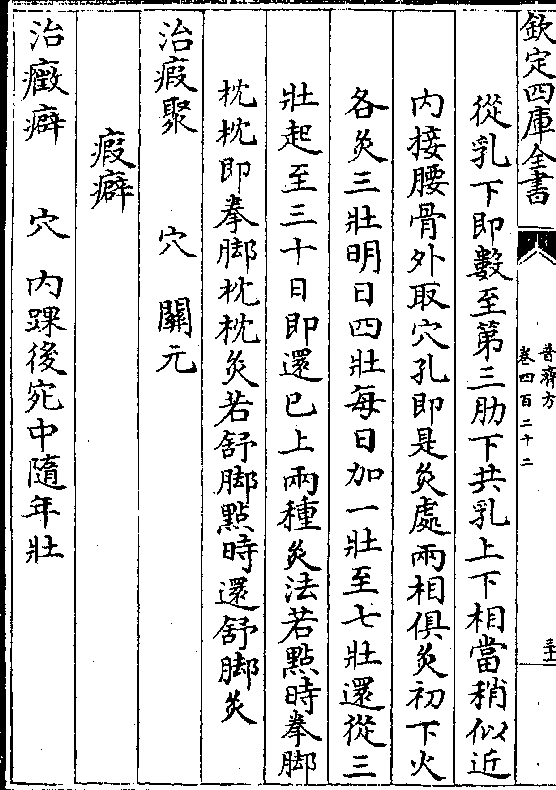 欽定四庫全書
普濟方
卷四百二十二
從乳下即數至第三肋下共乳上下相當稍似近
内接腰骨外取穴孔即是灸處兩相俱灸初下火
各灸三壯明日四壯每日加一壯至七壯還從三
壯起至三十日即還已上兩種灸法若點時拳脚
枕枕即拳脚枕枕灸若舒脚點時還舒脚灸
治瘕聚　　穴　關元
瘕癖
治癥癖　　穴　内踝後宛中隨年壯